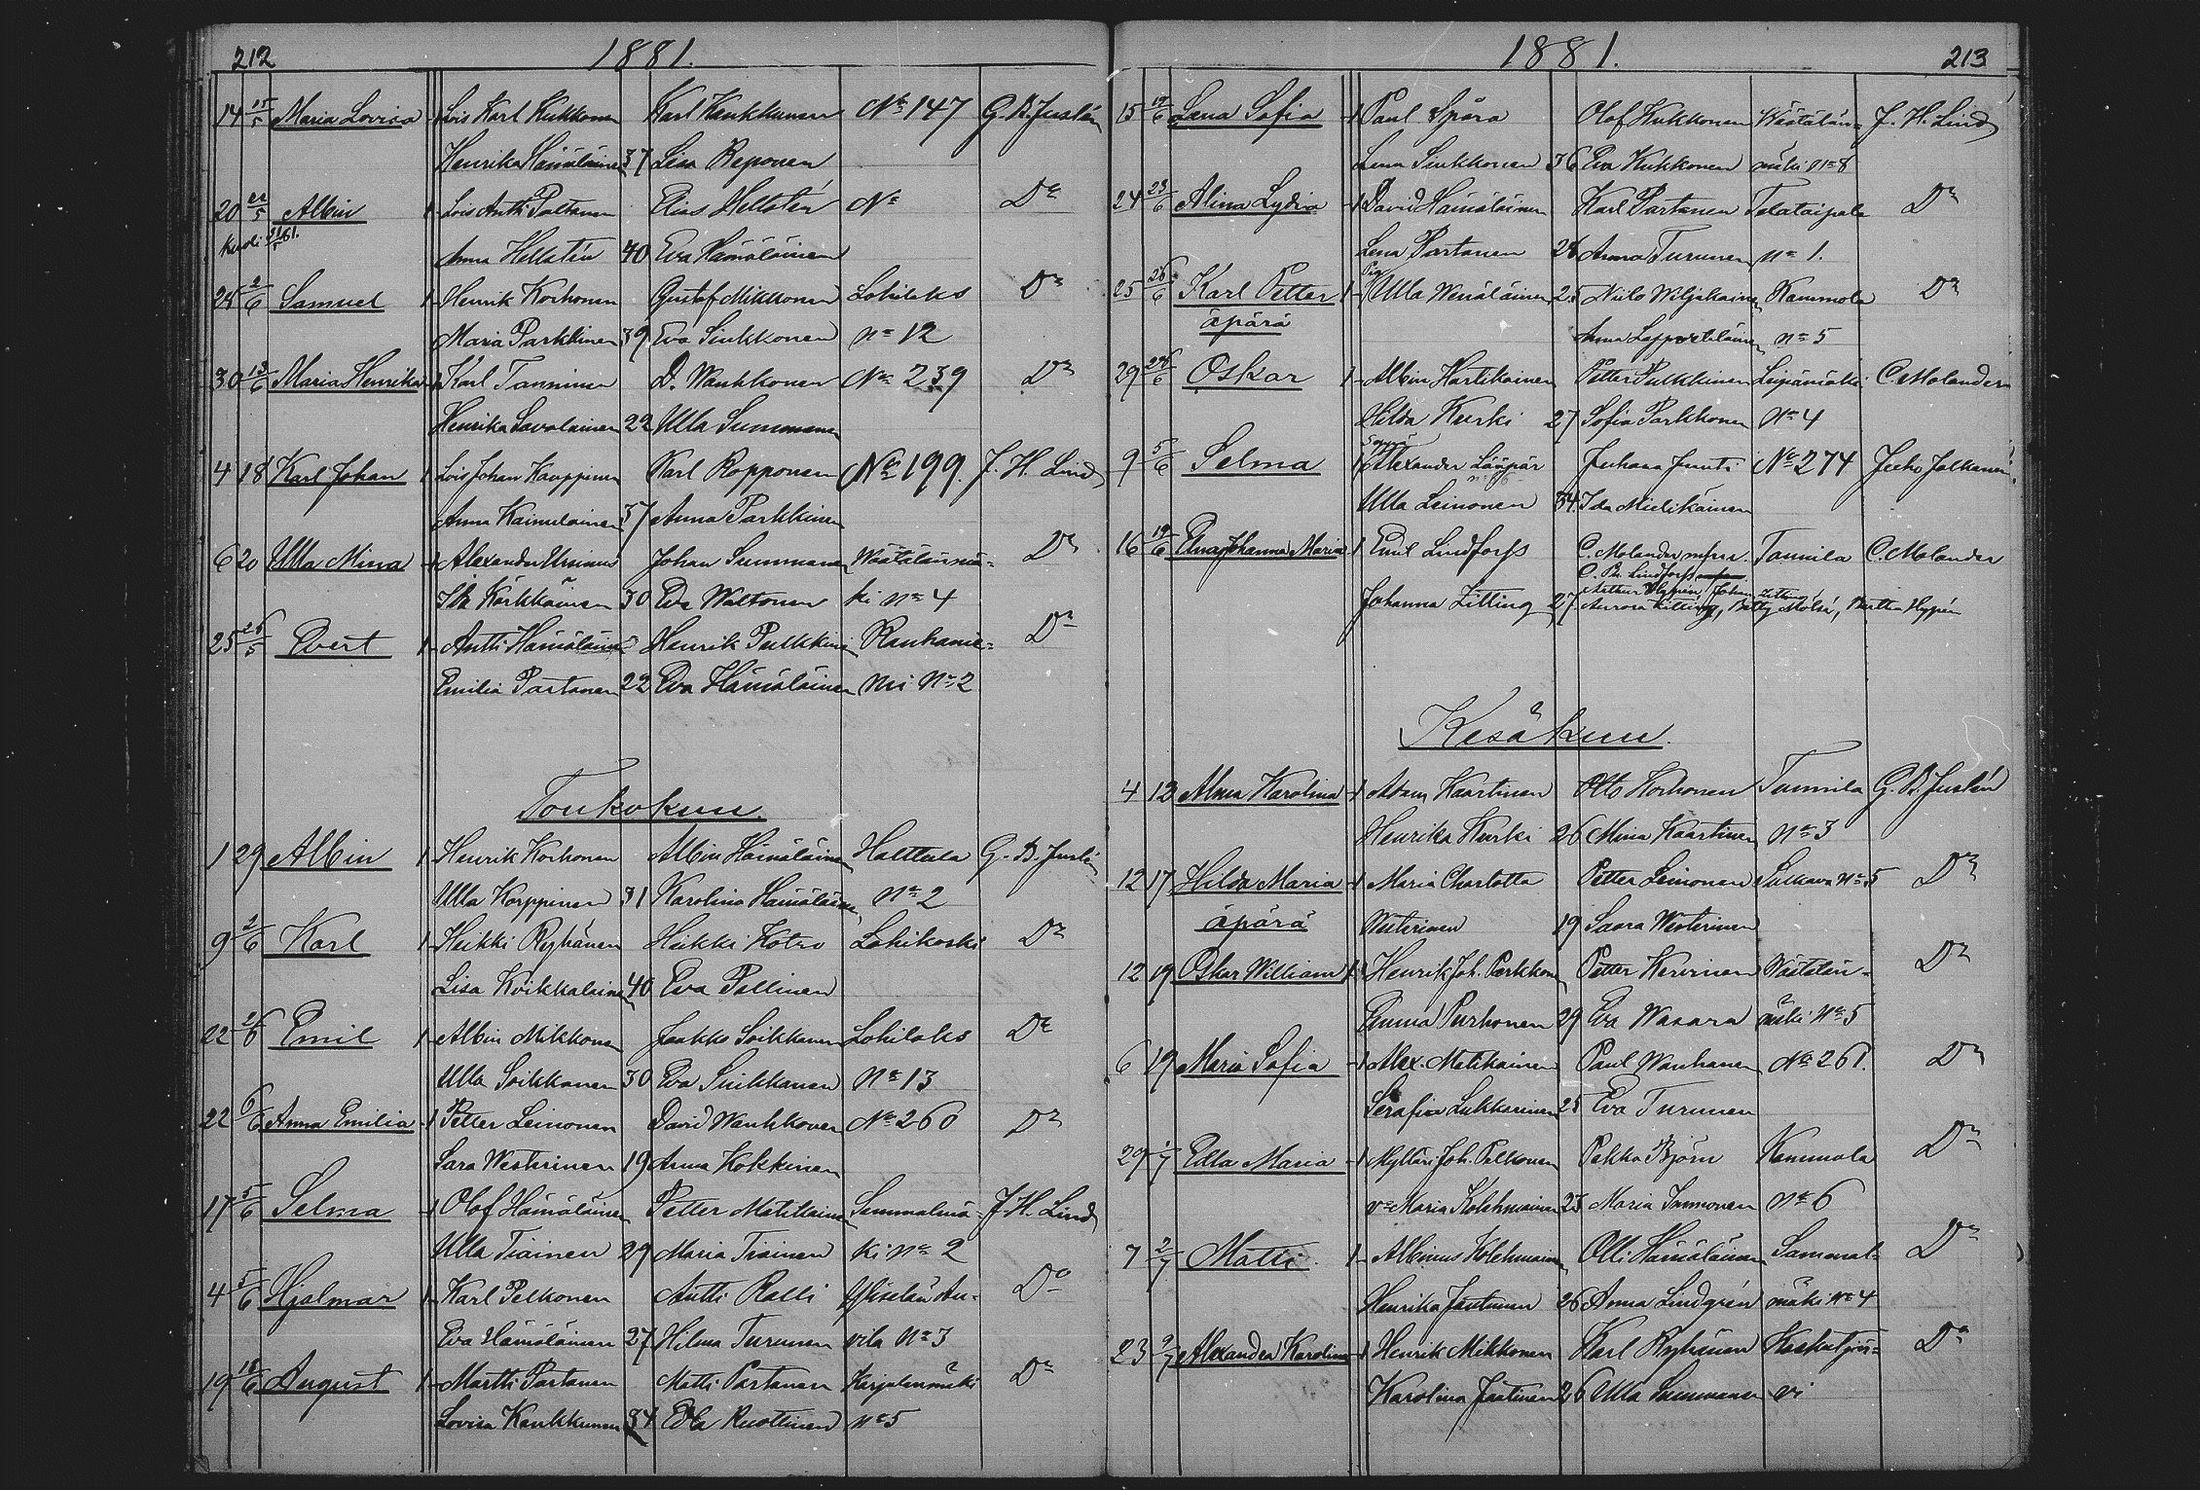 212 1881.
14 15/5 Maria Lovisa 1 Lois Karl Kukkonen Karl Kaukkunen No 147 G. B. Juslén
Henrika Hämäläinen 37 Lisa Reponen
20 22/5 Albin 1 Lois Antti Paltanen Elias Hellstén No Do
Anna Hellstén 40 Eva Hämäläinen
28 2/6 Samuel 1 Henrik Korhonen Gustaf Mikkonen Lohilaks Do
Maria Parkkinen 39 Eva Sinkkonen no 12
30 13/6 Maria Henrika 1 Karl Tanninen D. Wankkonen No 239 Do
Henrika Savolainen 22 Ulla Summanen
4 18 Karl Johan 1 Lois Johan Kauppinen Karl Ropponen No 199. J. H. Lind
Anna Kainulainen 37 Anna Parkkinen
6 20 Ulla Mina 1 Alexander Ursinus Johan Summanen Wäätälänmä- Do
Ida Kärkkäinen 30 Eva Waltonen ki no 4
25 26/5 Evert 1 Antti Hämäläinen Henrik Pulkkinen Rauhanie- Do
Emilia Partanen 22 Eva Hämäläinen mi No 2
Toukokuu.
1 29 Albin 1 Henrik Korhonen Albin Hämäläinen Halttula G. B. Juslén
Ulla Korppinen 31 Karolina Hämäläinen no 2
9 2/6 Karl 1 Heikki Ryhänen Heikki Kotro Lohikoski Do
Lisa Koikkalainen 40 Eva Pallinen
22 2/6 Emil 1 Albin Mikkonen Jaakko Soikkanen Lohilaks Do
Ulla Soikkanen 30 Eva Sinkkanen No 13
22 6/6 Anna Emilia 1 Petter Leinonen David Wankkonen No 260 Do
Sara Westerinen 19 Anna Kokkinen
17 5/6 Selma 1 Olof Hämäläinen Petter Matikainen Sammalmä- J. H. Lind
Ulla Tiainen 29 Maria Tiainen ki no 2
4 5/6 Hjalmar 1 Karl Pelkonen Antti Ralli Do
Eva Hämäläinen 27 Hilma Turunen vila No 3
19 18/6 August 1 Martti Partanen Matti Partanen Karjalanmäki Do
Lovisa Kaukkunen 34 Edla Ruottinen no 5
1881. 213
15 19/6 Lena Sofia 1 Paul Spåra Olof Kukkonen Wäätälän- J. H. Lind
Lena Sinkkonen 36 Eva Kukkonen mäki no 8
24 23/6 Alina Lydia 1 David Hämäläinen Karl Partanen Telataipale Do
Lena Partanen 28 Anna Turunen no 1.
25 26/6 Karl Petter 1 Pia Ulla Wenäläinen 25 Niilo Wiljakainen Kammola Do
äpärä Anna Lappvetläinen no 5
29 26/6 Oskar 1 Albin Hartikainen Petter Pulkkinen Leipämäki C. Molander
Hilda Kurki 27 Sofia Parkkonen No 4
9 5/6 Selma 1 Alexander Lääpär Juhana Junti No 274 Juho Jalkanen
Ulla Leinonen 34. Ida Mielikäinen
16 19/6 Elna Johanna Maria 1 Emil Lindforss C. Molander Tannila C. Molander
C. Lindforss
Arthur Hyppén, Johan Zitting
Johanna Zitting 27 Aurora Zitting, Betty Molér, Bertha Hyppén
Kesäkuu.
4 12 Alma Karolina 1 Adam Kaartinen Otto Korhonen Tannila G. B. Juslén
Henrika Kurki 26 Mina Kaartinen No 3
12 17 Hilda Maria 1 Maria Charlotta Petter Leinonen Sulkava No 5 Do
äpärä Westerinen 19 Saara Westerinen
12 19 Oskar William 1 Henrik Joh. Parkkonen Petter Kervinen Wäätälän- Do
Emma Purhonen 29 Eva Wasara mäki No 5
6 19 Maria Sofia 1 Alex. Matikainen Paul Wanhanen No 261. Do
Serafina Lukkarinen 25 Eva Turunen
29 1/7 Edla Maria 1 Mylläri Joh. Pelkonen Pekka Björn Kammola Do
vo Maria Kolehmainen 23 Maria Immonen no 6
7 2/7 Matti. 1 Albinus Kolehmainen Olli Hämäläinen Sammal- Do
Henrika Jantunen 26 Anna Lindgrén mäki No 4
23 9/7 Alexandra Karolina 1 Henrik Mikkonen Karl Ryhänen Kaskutjär- Do
Karolina Jaatinen 26 Ulla Summanen vi